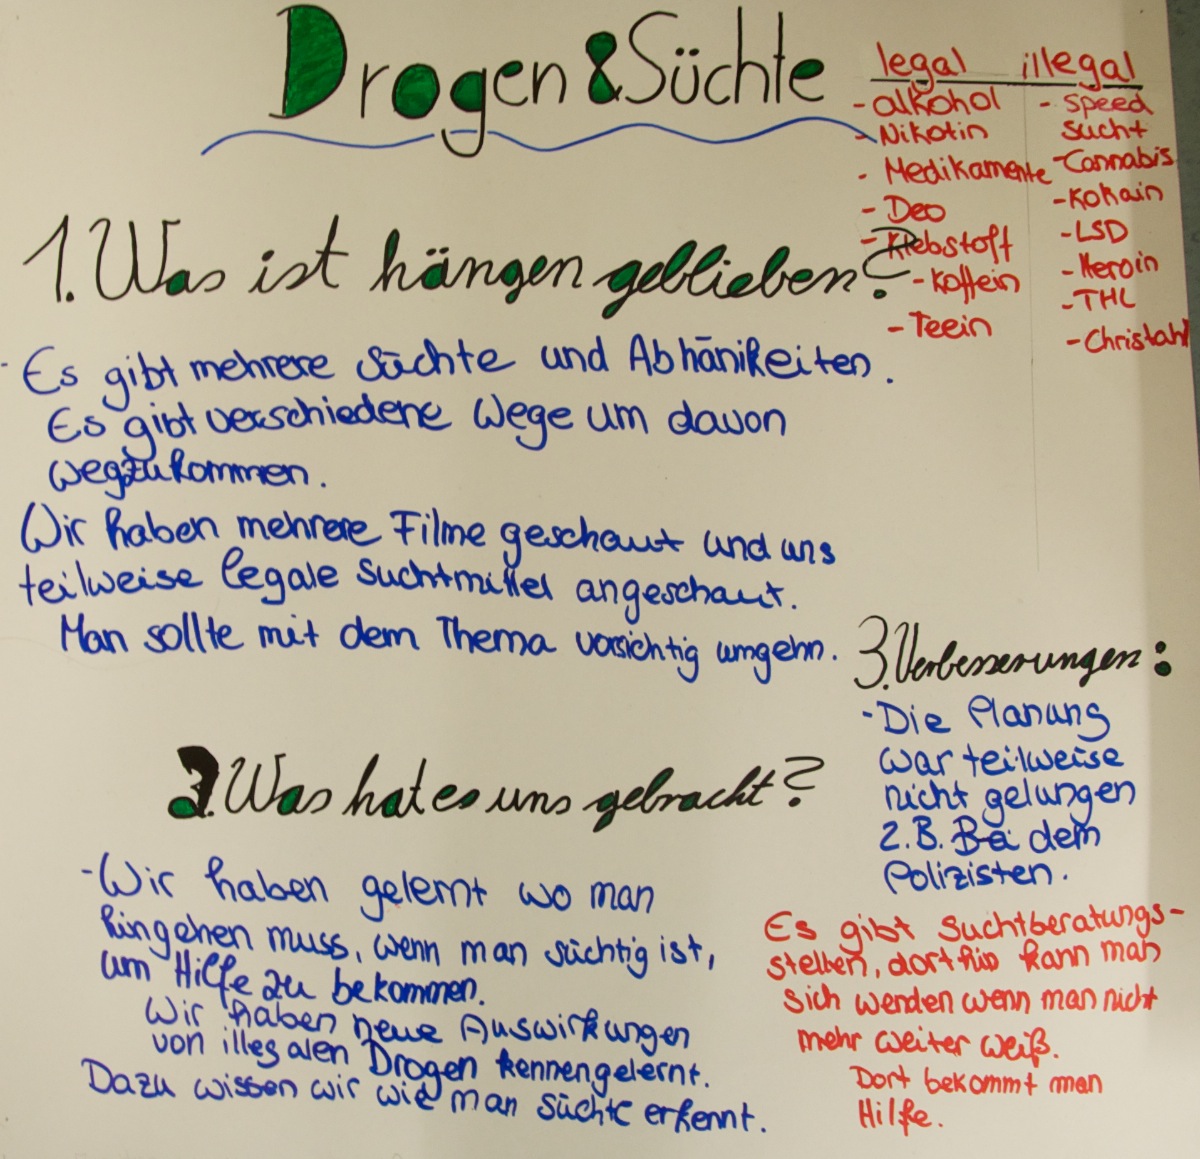 Drogen & Süchte
legal
- alkohol
- Nikotin
- Medikamente
- Deo
- Klebstoff
- Koffein
- Teein
illegal
- Speed
sucht
- Cannabis
- Kokain
- LSD
- Heroin
- THC
1. Was ist hängen geblieben?
- Es gibt mehrere Süchte und Abhänikeiten.
Es gibt verschiedene Wege um davon
wegzukommen.
Wir haben mehrere Filme geschaut und uns
teilweise legale Suchtmittel angeschaut.
Man sollte mit dem Thema vorsichtig umgehn.
2. Was hat es uns gebracht?
- Wir haben gelernt wo man
hingehen muss, wenn man süchtig ist,
um Hilfe zu bekommen.
Wir haben neue Auswirkungen
von illegalen Drogen kennengelernt.
Dazu wissen wir wie man Süchte erkennt.
3. Verbesserungen:
- Die Planung
war teilweise
nicht gelungen
z.B. Bei dem
Polizisten.
Es gibt Suchtberatungs-
stellen, dort kann man
sich wenden wenn man nicht
mehr weiter weiß.
Dort bekommt man
Hilfe.